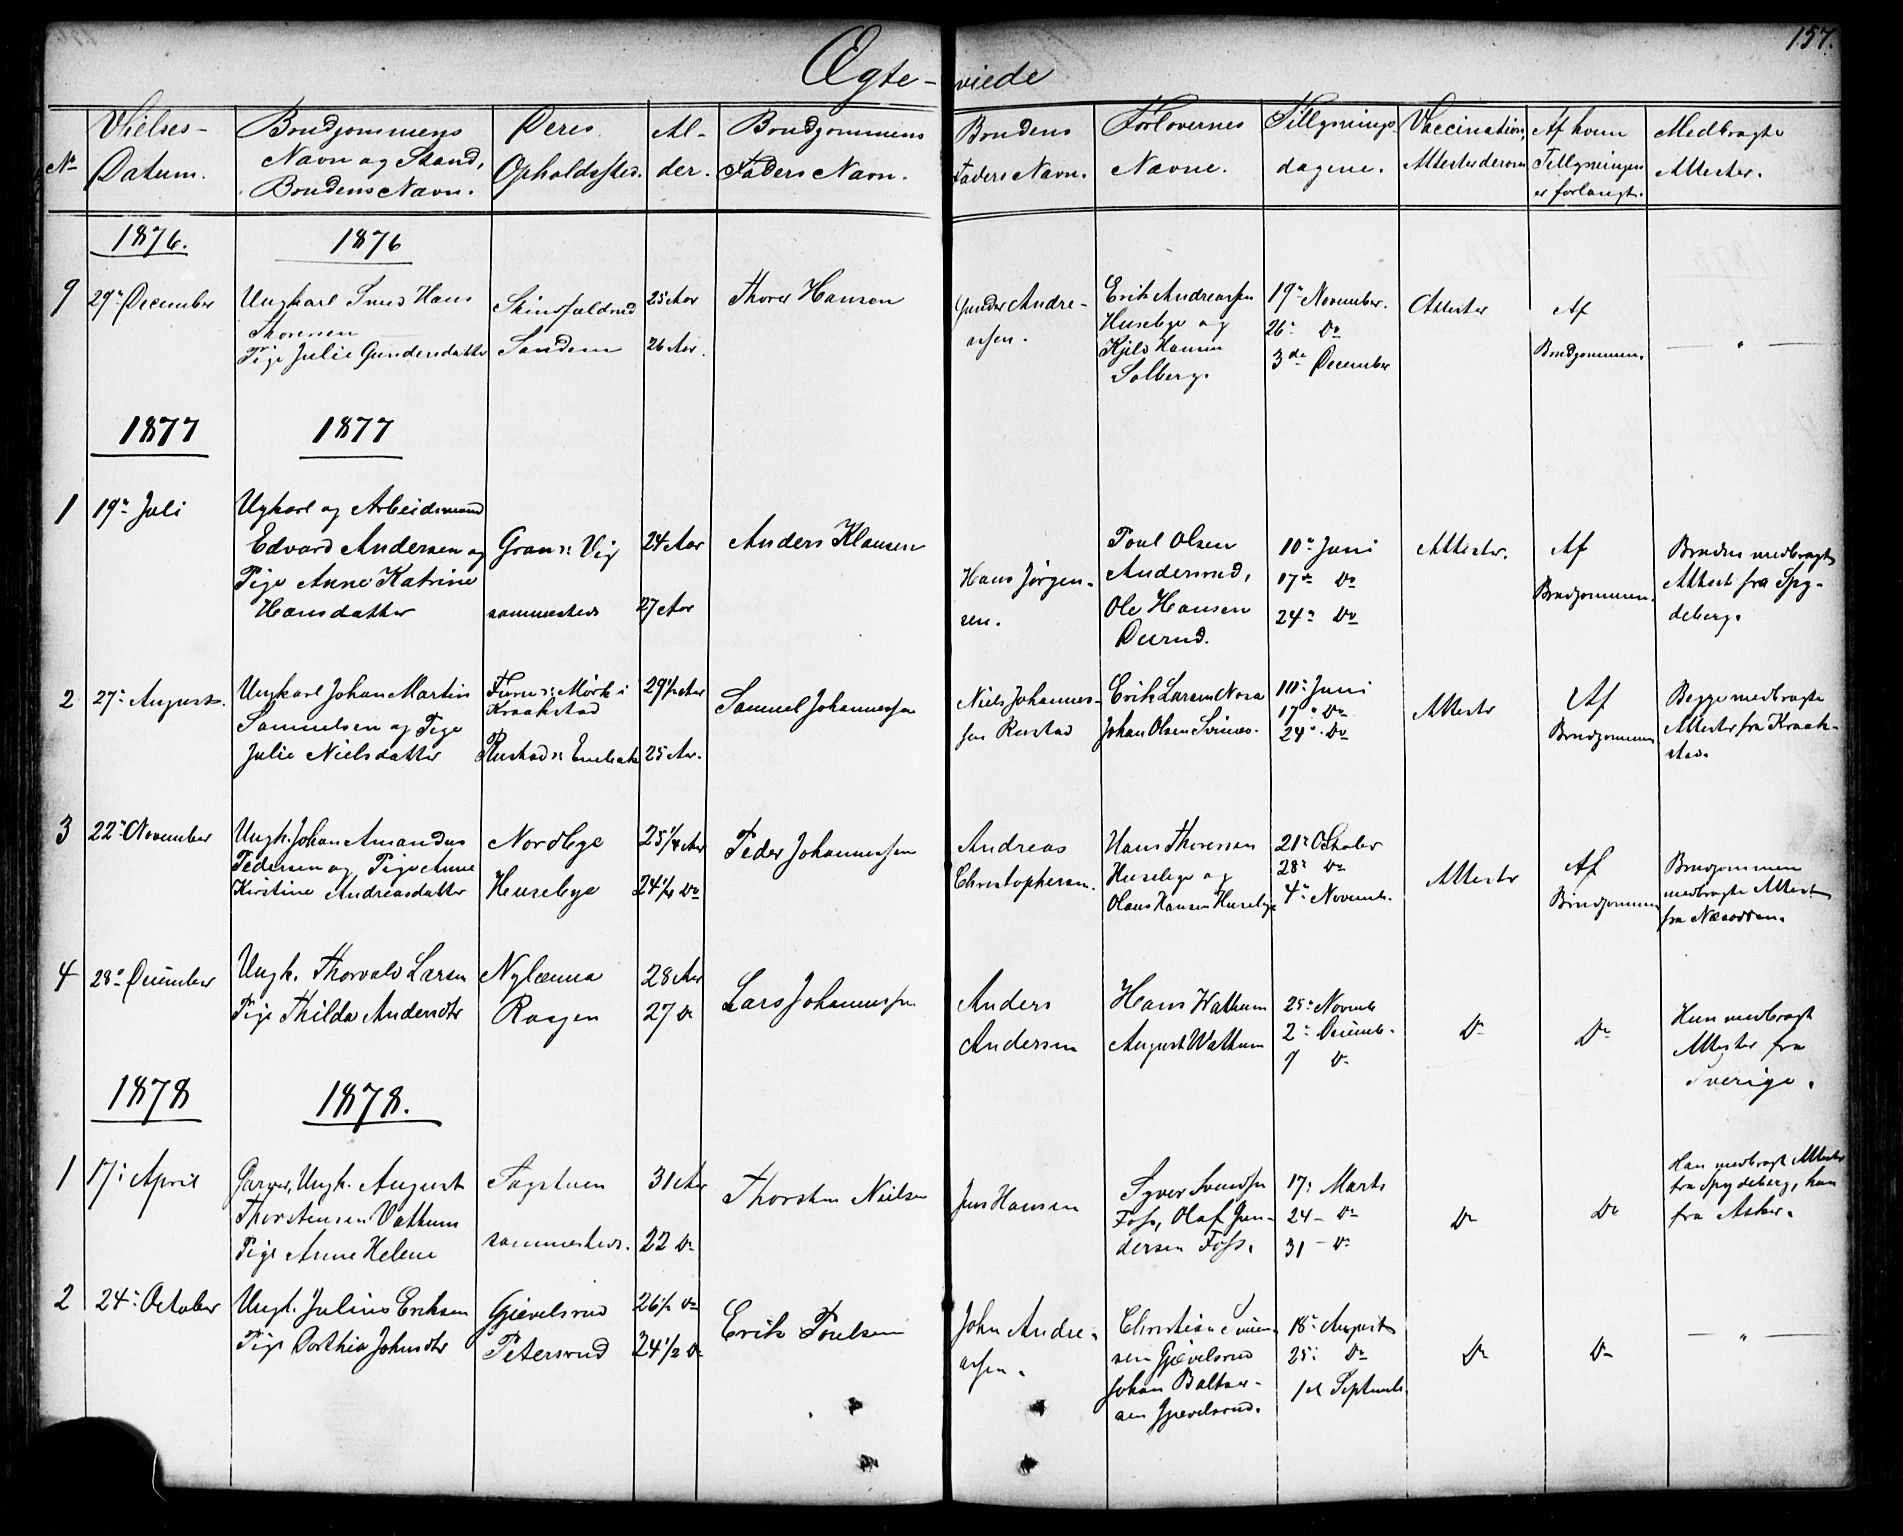 157.
Ægte-viede
No
Vielses-Datum.
Brudgommens Navn og Stand, Brudens Navn.
Deres Opholdssted.
Al-der.
Brudgommens Faders Navn.
Brudens Faders Navn.
Forlovernes Navne.
Tillysnings dagene.
Vaccination, Attester derom
Af hvem Tillysningen er forlangt.
Medbragte Attester.
1876. 1876
9 29de December
Ungkarl Hans
Thoresen
Pige Julie Gundersdatter
Sandem
25 Aar
26 Aar.
Thorer Hansen
Gunder Andre-
asen.
Erik Andreassen
Husebye og
Kjeld Hansen
Solberg.
19de November.
26de Do
3de December
Attester
Af
Brudgommen.
— " —
1877 1877
1 19de Juli
Ugkarl og Arbeidsmand
Edvard Andersen og
Pige Anne Katrine
Hansdatter
Gran Vig
sammesteds
24 Aar
27 Aar
Anders Klausen
Hans Jørgen-
sen.
Poul Olsen
Andersrud,
Ole Hansen
Duerud.
10de Juni
17de Do
24de Do
Attester.
Af
Brudgommen.
Bruden medbragte
Attest fra Spy-
deberg.
2 27de August.
Ungkarl Johan Martin
Samuelsen og Pige
Julie Nielsdatter
Mørk i
Kraakstad
Rustad Enebak
29 1/2 Aar
25 Aar.
Samuel Johannessen
Niels Johannes-
sen Rustad
Erik Larsen
Johan Olsen
10de Juni
17de Do
24de Do
Attester
Af
Brudgommen
Begge medbragte
Attester fra Kraak-
stad.
3 22de November
Ungk. Johan Amandus
Pedersen og Pige Anne
Kirstine Andreasdatter
Nordbye
Husebye
25 1/4 Aar
24 1/4 Do
Peder Johannessen
Andreas
Christophersen.
Hans Thoresen
Husebye og
Olaus Hansen Husebye
21de October
28de Do
4de Novemb.
Attester
Af
Brudgommen
Brudgommen
medbragte Attest
fra Næsodden.
4 28de December
Ungk. Thorvald Larsen
Pige Thilda Andersdtr
Nylænna
Raagen
28 Aar
27 Do
Lars Johannessen
Anders
Andersen
Hans Wathum
August Wathum
25de Novemb
2de Decemb.
9 Do
Do
Do
Hun medbragt
Attester fra
Sverige.
1878 1878.
1 17de April
Garver, Ungk. August
Thorstensen Vathum
Pige Anne Helene
Fagstuen
sammesteds.
31 Aar
22 Do
Thorsten Nielsen
Jens Hansen
Syver Svendsen
Foss, Olaf Gun-
dersen Foss.
17de Marts
24 — Do
31 — Do
Do
Do
Han medbragt Attester
fra Spydeberg, hun
fra Asker.
2 24de October
Ungk. Julius Eriksen
Pige Dorthia Johnsdtr
Gjevelsrud
Petersrud
26 1/2 Do
24 1/2 Do
Erik Poulsen
John Andre-
asen.
Christian
sen Gjevelsrud
Johan Baltzer-
sen Gjevelsrud.
18de August
25de Do
1st Septemb.
Do
Do
— " —